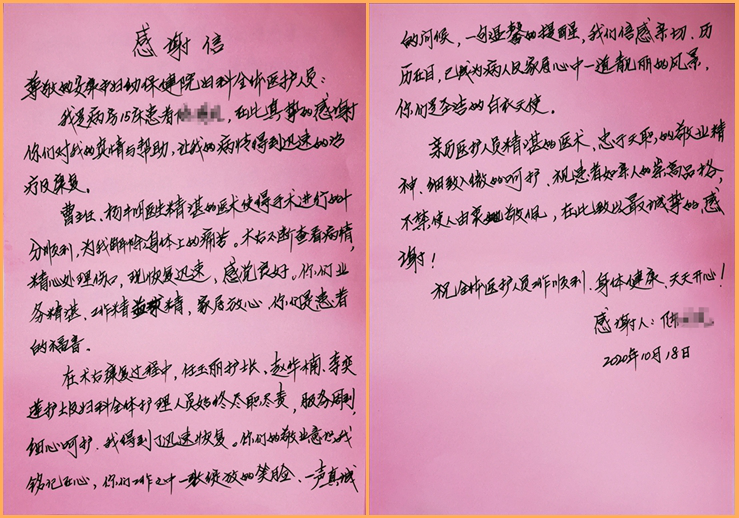 感谢信
尊敬的安阜市妇幼保健院妇科全体医护人员：
我是病房15床患者，在此真挚的感谢
你们对我的真情与帮助，让我的病情得到迅速的治
疗及康复。
曹主任、杨丰明医生精湛的医术使得手术进行的十
分顺利，为我解除身体上的痛苦。术后不断查看病情，
精心处理伤口，现恢复迅速，感觉良好。你们业
务精湛、工作精益求精，家属放心，你们是患者
的福音。
在术后康复过程中，任玉丽护士长、赵华楠、李奕
莲护士及妇科全体护理人员始终尽职尽责，服务周到，
细心呵护，我得到了迅速恢复。你们的敬业意识我
铭记在心，你们工作之中一张绽放的笑脸、一声真诚
的问候，一句温馨的提醒，我们倍感亲切、历
历在目，已成为病人及家属心中一道靓丽的风景，
你们是合格的白衣天使。
亲历医护人员精湛的医术、忠于天职，的敬业精
神、细致入微的呵护、视患者如亲人的崇高品格，
不禁使人由衷地敬佩，在此致以最诚挚的感
谢！
祝全体医护人员工作顺利、身体健康、天天开心！
感谢人：陈
2020年10月18日